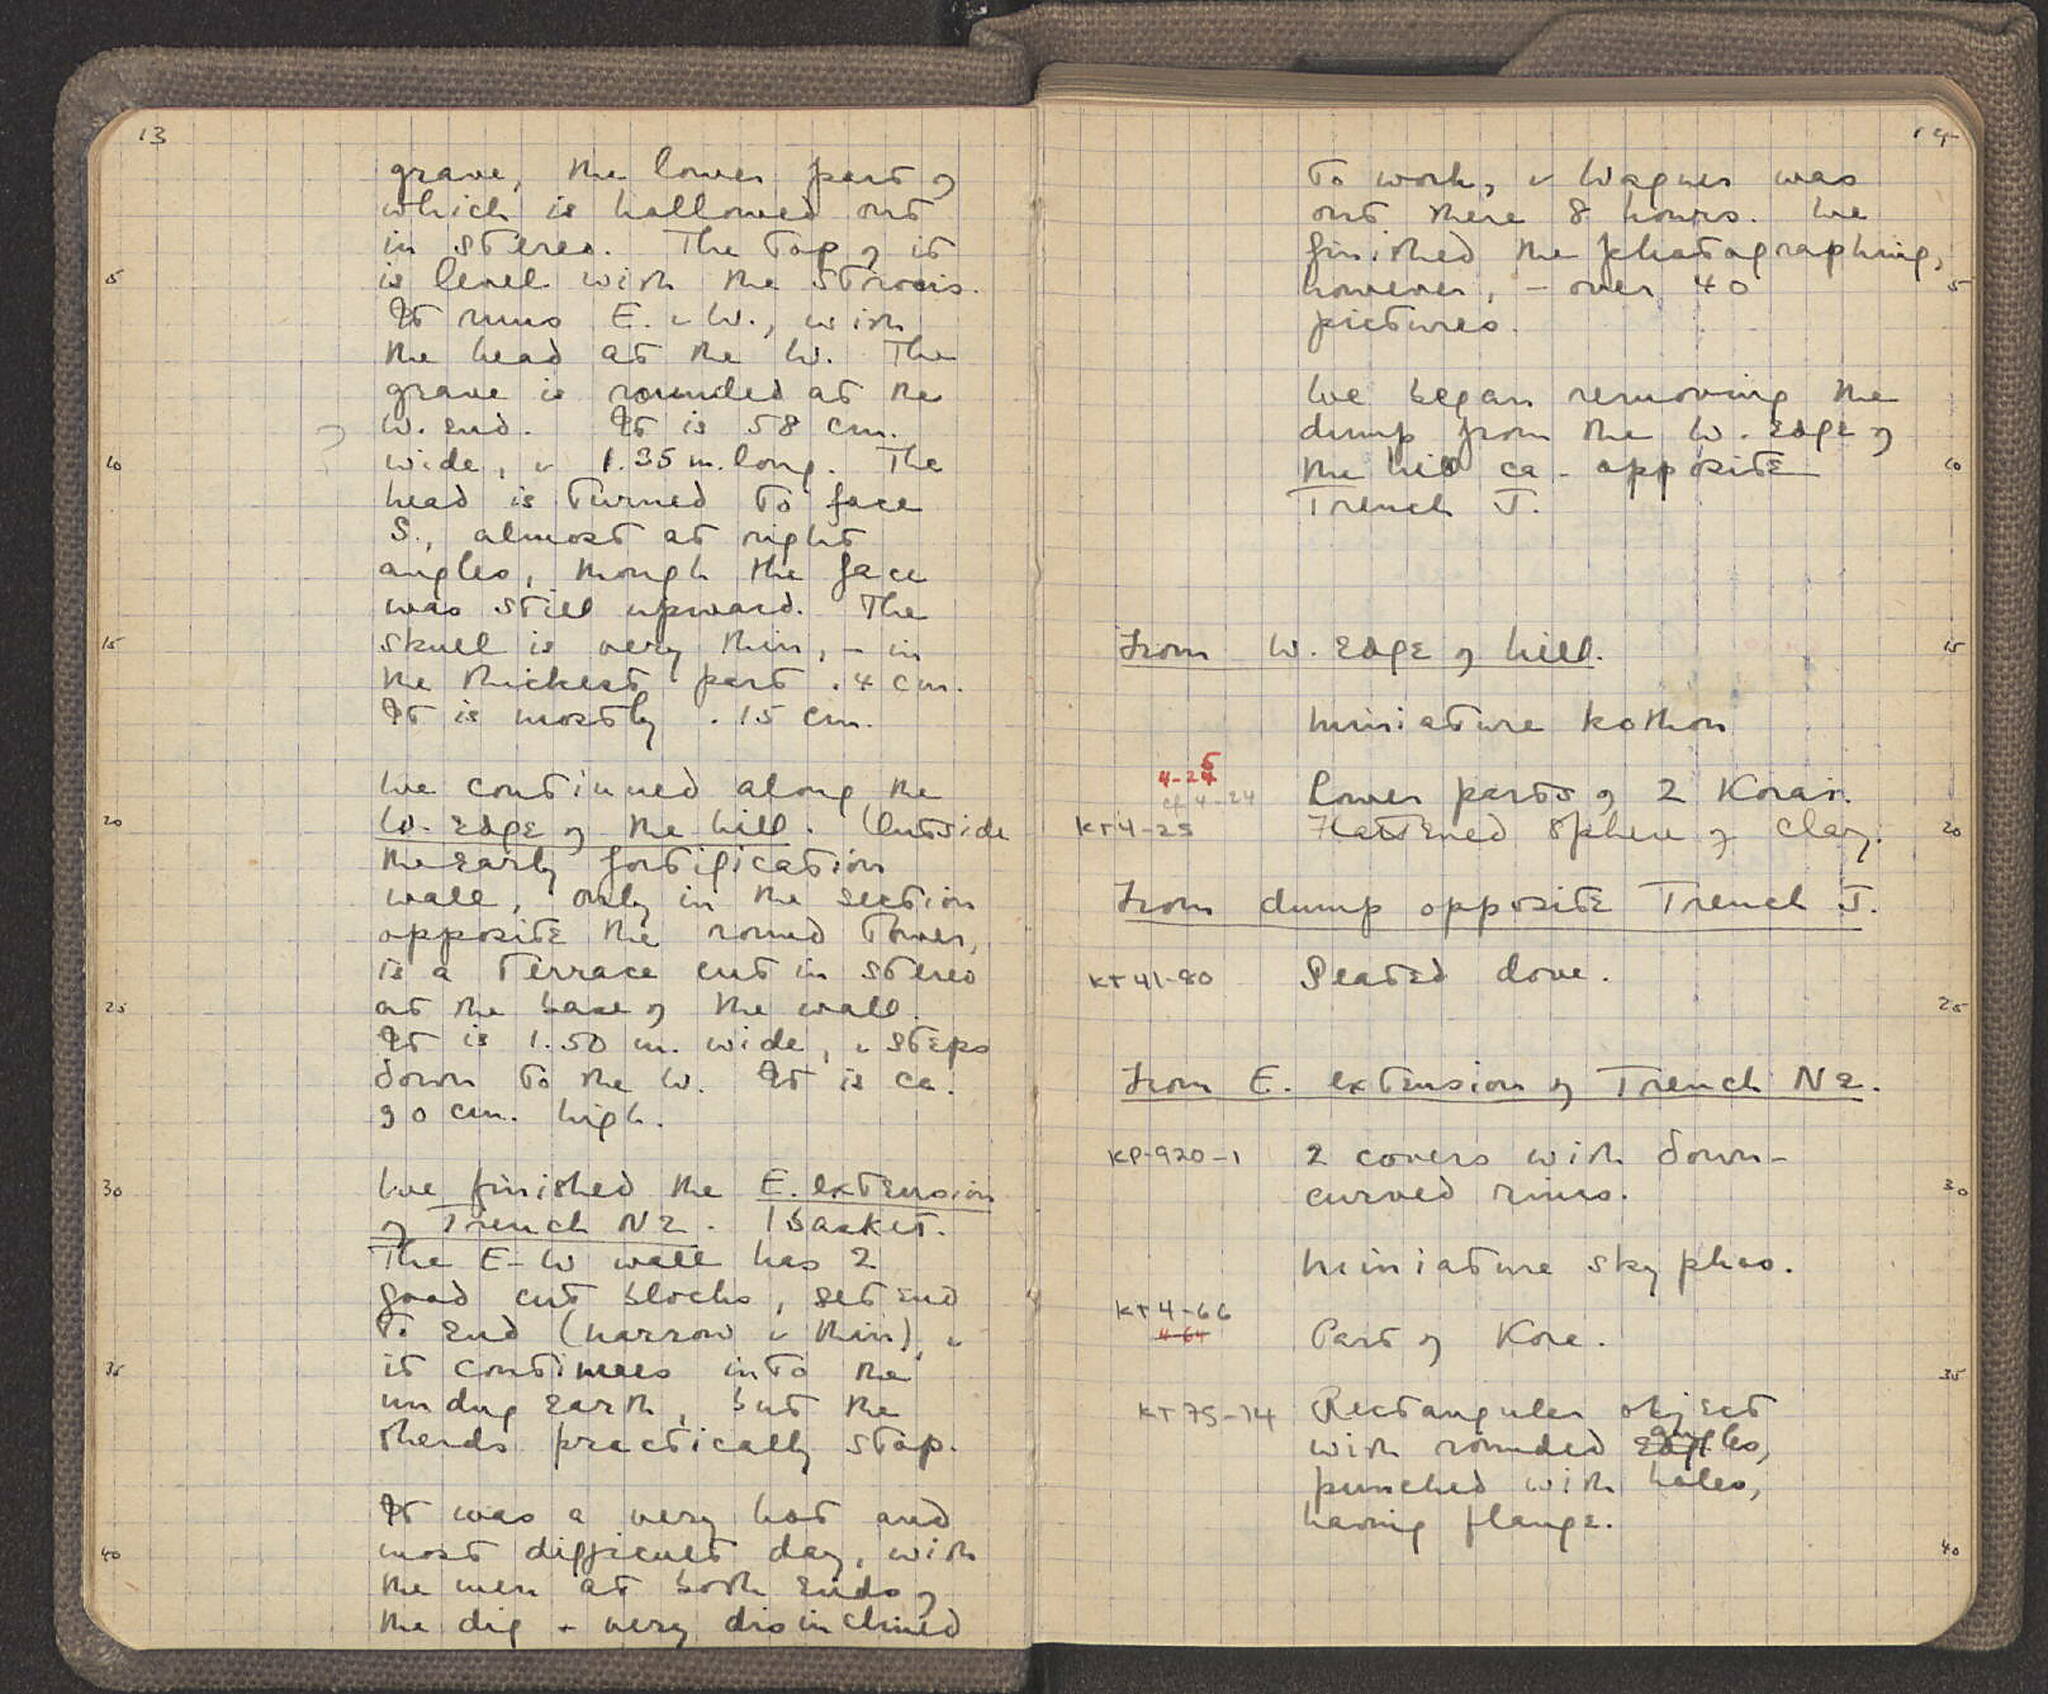 13
grave, the lower part of
which is hollowed out
in stereo. The top of it
5 is level with the strosis.
It runs E. & W., with
the head at the W. The
grave is rounded at the
W. end. It is 58 cm.
10 wide, & 1.35 m. long. The
head is turned to face
S., almost at right
angles, though the face
was still upward. The
15 skull is very thin, – in
the thickest part .4 cm.
It is mostly .15 cm.
We continued along the
20 W. edge of the hill. Outside
the early fortification
wall, only in the section
opposite the round tower,
is a terrace cut in stereo
25 at the base of the wall.
It is 1.50 m. wide, & steps
down to the W. It is ca.
90 cm. high.
30 We finished the E. extension
of Trench N2. 1 basket.
The E-W wall has 2
good cut blocks, set end
to end (narrow & thin), &
35 it continues into the
undug earth, but the
sherds practically stop.
It was a very hot and
40 most difficult day, with
the men at both ends of
the dig & very disinclined
14
to work, & Wagner was
out there 8 hours. We
finished the photographing,
however, – over 40 5
pictures.
We began removing the
dump from the W. edge of
the hill ca. opposite 10
Trench J.
From W. edge of hill. 15
Miniature kothon
4-24 5
cf 4-24 Lower parts of 2 Korai.
KT4-25 Flattened sphere of clay. 20
From dump opposite Trench J.
KT41-80 Seated dove.
25
From E. extension of Trench N2.
KP-920-1 2 covers with down-
curved rims. 30
Miniature skyphos.
KT4-66
4-64 Part of Kore.
35
KT75-14 Rectangular object
with rounded angles,
punched with holes,
having flange.
40